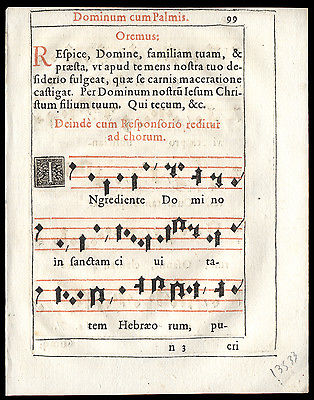 Dominum cum Palmis. 99
Oremus;
REspice, Domine, familiam tuam, &
præsta, vt apud te mens nostra tuo de-
siderio fulgeat, quæ se carnis maceratione
castigat. Per Dominum nostrũ Iesum Chri-
stum filium tuum. Qui tecum, &c.
Deindè cum Responsorio reditur
ad chorum.
INgrediente Do mi no
in sanctam ci ui ta-
tem Hebræo rum, pu-
n 3 cri
13533